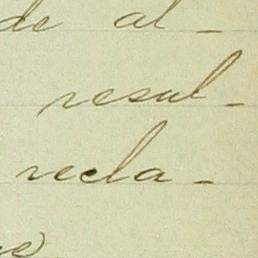 de al-
resul-
recla-